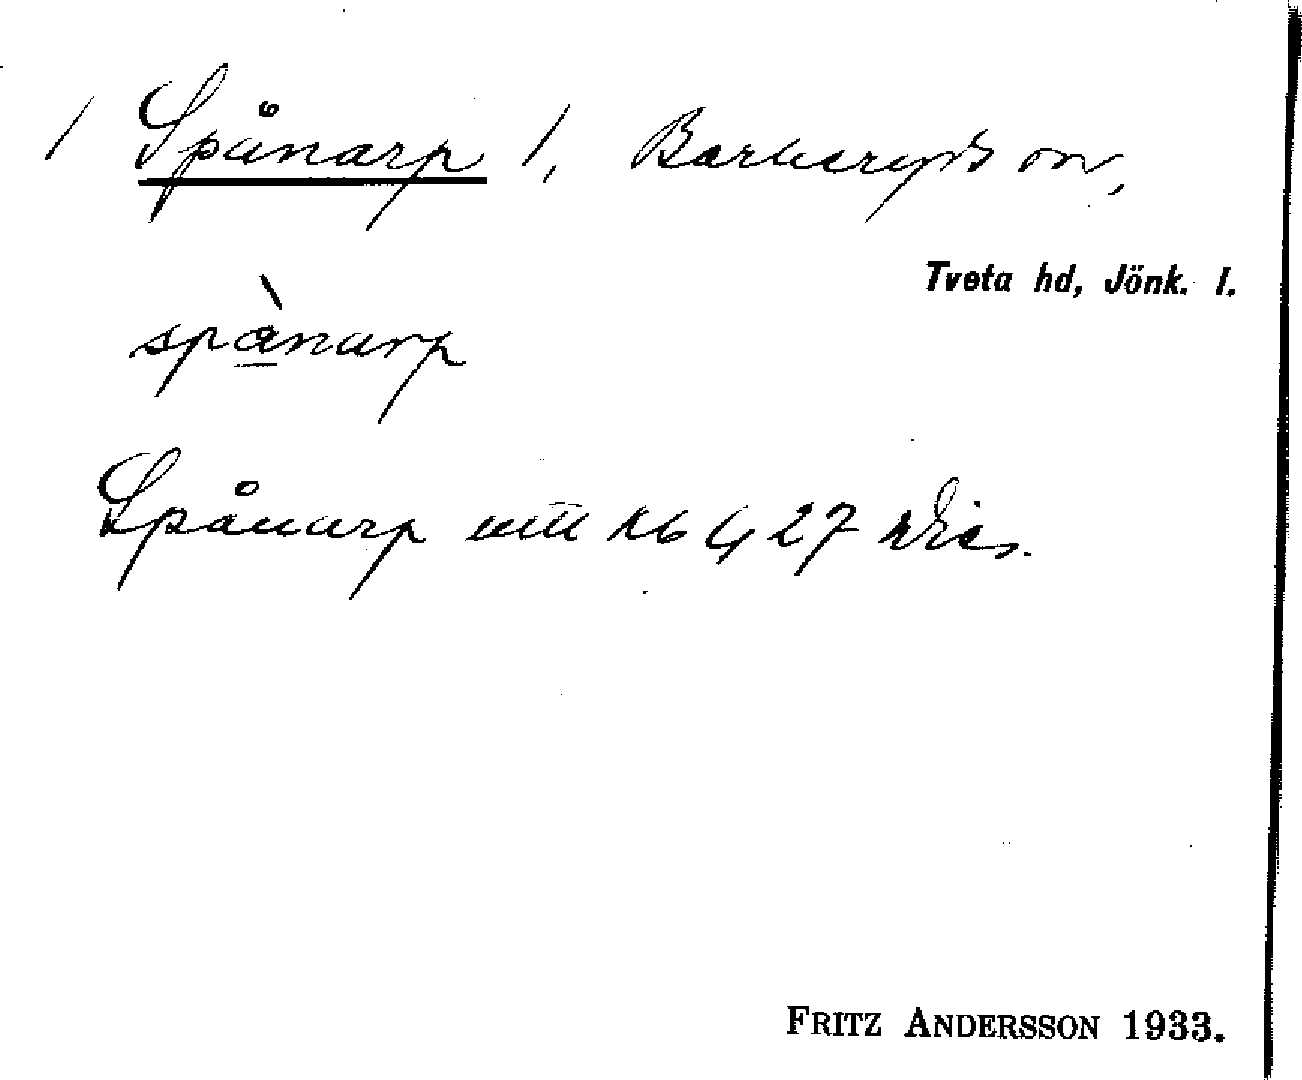 / Spånarp /, Barkeryds sn,
Tveta hd, Jönk. l.
spånarp
Spånarp
FRITZ ANDERSSON 1933.